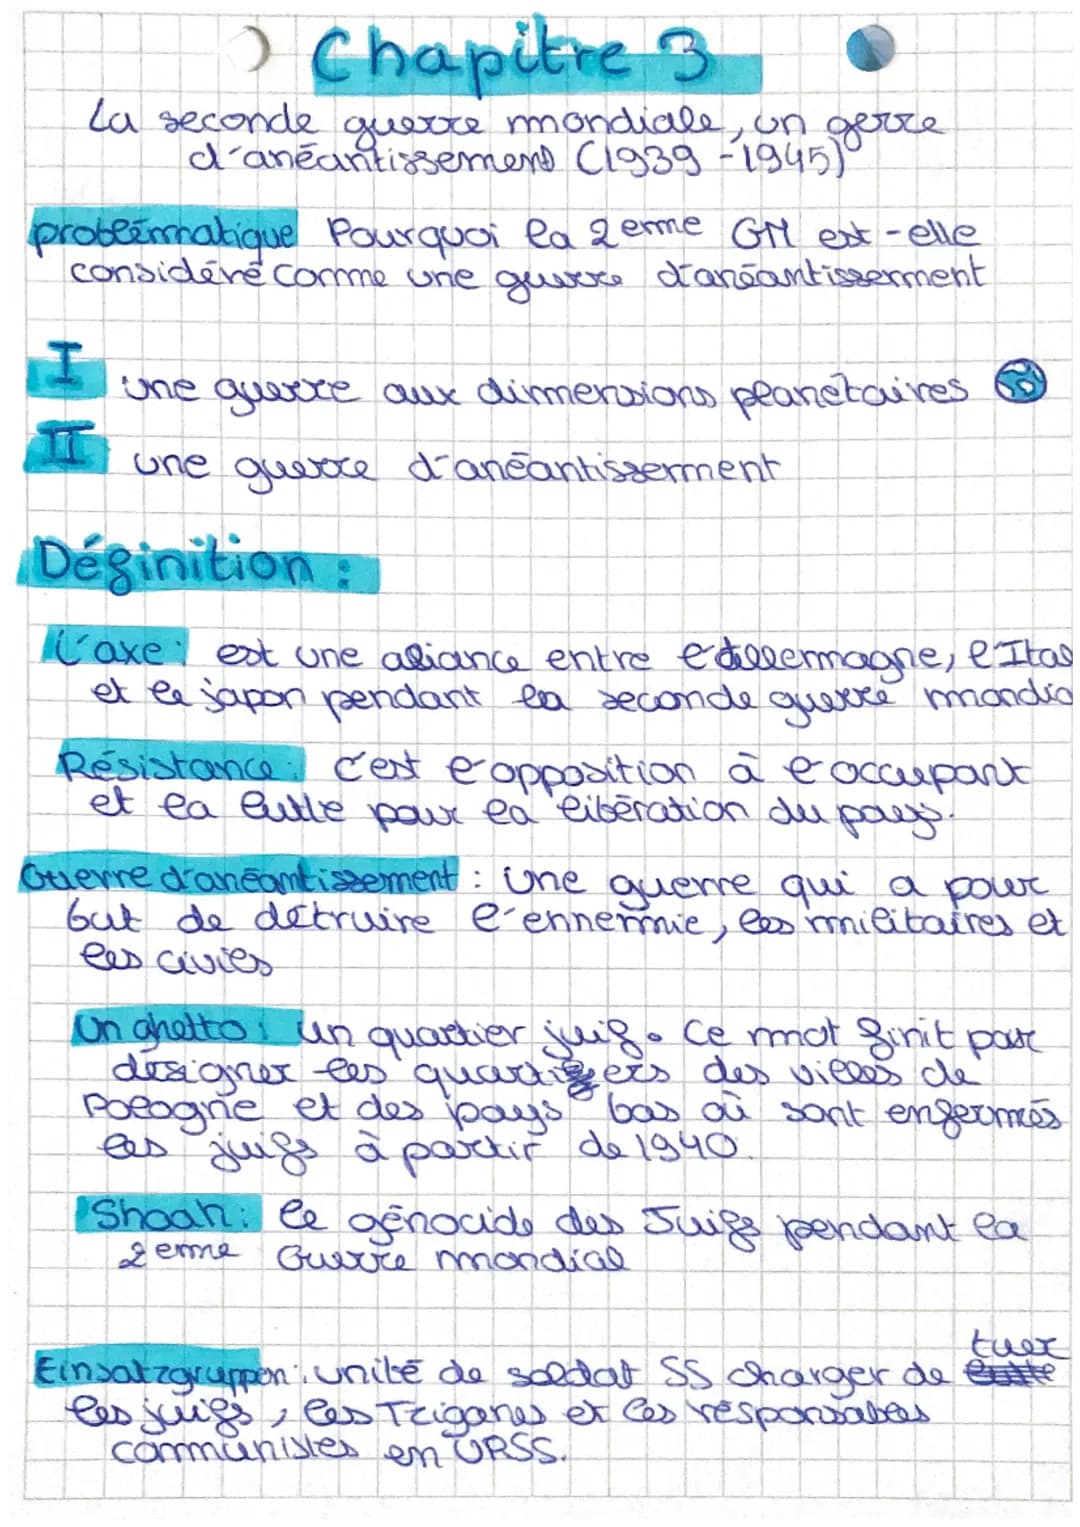 Chapitre 3
La seconde guerre mondiale, un gerre
d'anéantissement (1939-1945)
problématique Pourquoi la 2eme GM est-elle
considéré comme une guerre d'anéantissement
I une guerre aux dimensions planétaires
II une guerre d'anéantissement
Définition :
L'axe : est une aliance entre l'allemagne, l'Ital
et le japon pendant la seconde guerre mondia
Résistance : c'est l'opposition à l'occupant
et la lutte pour la libération du pays.
Guerre d'anéantissement : une guerre qui a pour
but de détruire l'ennemie, les militaires et
les civils
Un ghetto : un quartier juif. Ce mot finit par
désigner les quartiers des villes de
Pologne et des pays bas où sont enfermés
les juifs à partir de 1940.
Shoah : le génocide des Juifs pendant la
2eme Guerre mondial
tuer
Einsatzgruppen : unité de soldat SS charger de
les juifs, les Tziganes et les responsables
communistes en URSS.